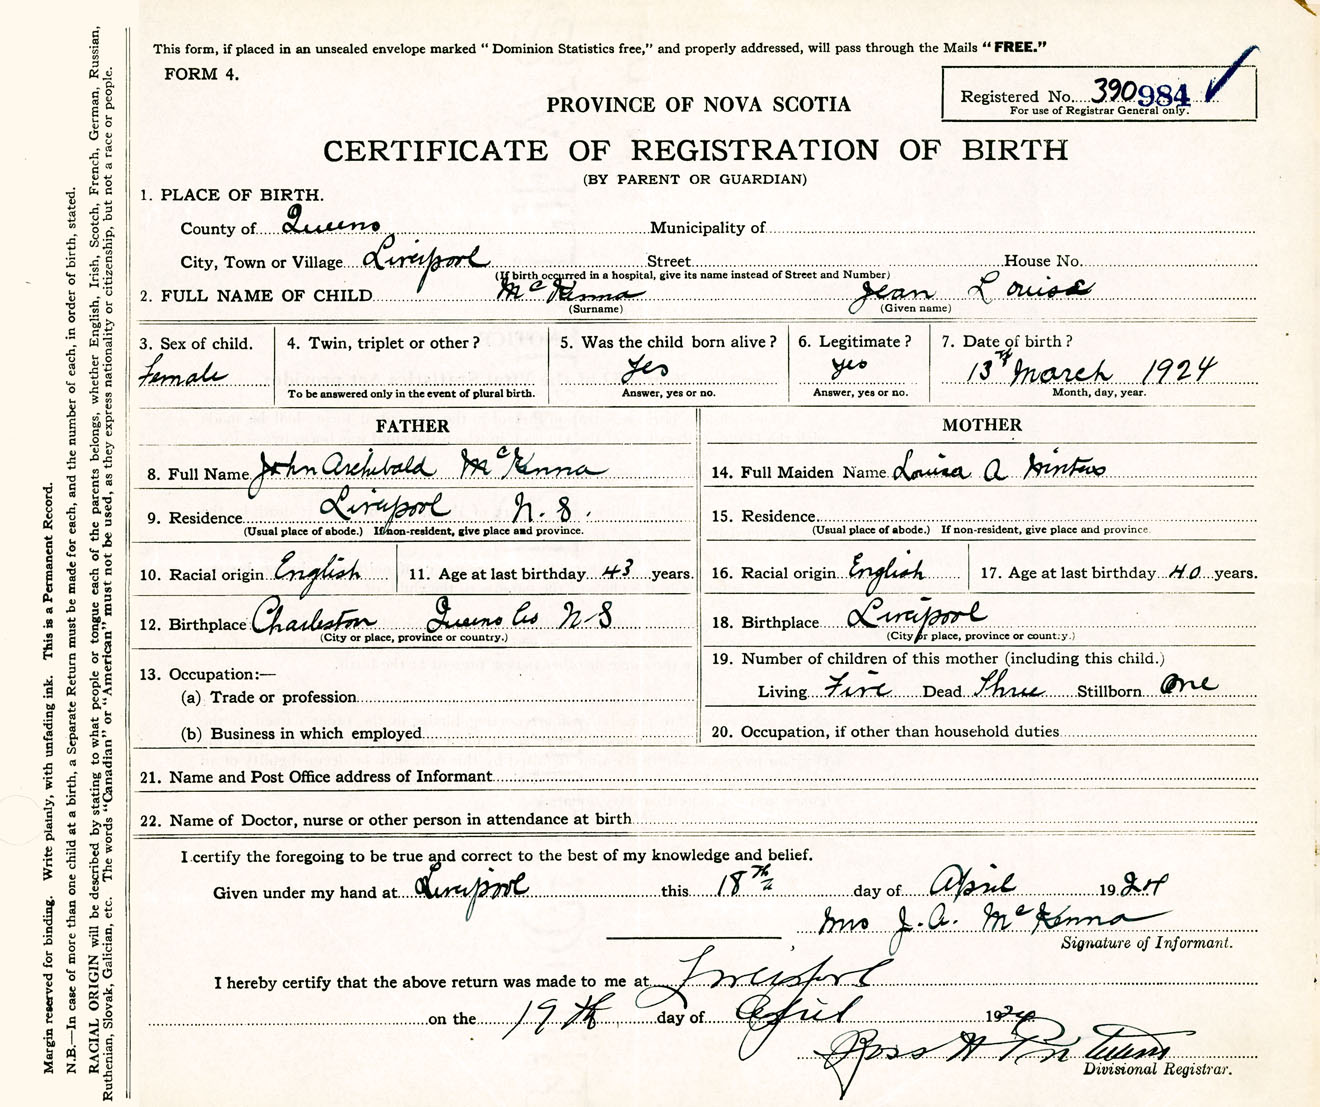 This form, if placed in an unsealed envelope marked “ Dominion Statistics free,” and properly addressed, will pass through the Mails “ FREE.”
FORM 4.
Registered No. 390984
For use of Registrar General only.
PROVINCE OF NOVA SCOTIA
CERTIFICATE OF REGISTRATION OF BIRTH
(BY PARENT OR GUARDIAN)
1. PLACE OF BIRTH.
County of Queens Municipality of
City, Town or Village Liverpool Street House No.
(If birth occurred in a hospital, give its name instead of Street and Number)
2. FULL NAME OF CHILD McKenna Jean Louise
(Surname) (Given name)
3. Sex of child. 4. Twin, triplet or other ? 5. Was the child born alive ? 6. Legitimate ? 7. Date of birth ?
Female Yes Yes 13th March 1924
To be answered only in the event of plural birth. Answer, yes or no. Answer, yes or no. Month, day, year.
FATHER
8. Full Name John Archibald McKenna
9. Residence Liverpool N.S.
(Usual place of abode.) If non-resident, give place and province.
10. Racial origin English 11. Age at last birthday 43 years.
12. Birthplace Charleston Queens Co N-S
(City or place, province or country.)
13. Occupation:—
(a) Trade or profession
(b) Business in which employed
MOTHER
14. Full Maiden Name Louisa A Winters
15. Residence
(Usual place of abode.) If non-resident, give place and province.
16. Racial origin English 17. Age at last birthday 40 years.
18. Birthplace Liverpool
(City or place, province or country.)
19. Number of children of this mother (including this child.)
Living Five Dead Three Stillborn One
20. Occupation, if other than household duties
21. Name and Post Office address of Informant
22. Name of Doctor, nurse or other person in attendance at birth
I certify the foregoing to be true and correct to the best of my knowledge and belief.
Given under my hand at Liverpool this 18th day of April 1924
Mrs J. A. McKenna
Signature of Informant.
I hereby certify that the above return was made to me at Liverpool
on the 19th day of April 1924
Ross H
Divisional Registrar.
Margin reserved for binding. Write plainly, with unfading ink. This is a Permanent Record.
N.B.—In case of more than one child at a birth, a Separate Return must be made for each, and the number of each, in order of birth, stated.
RACIAL ORIGIN will be described by stating to what people or tongue each of the parents belongs, whether English, Irish, Scotch, French, German, Russian,
Ruthenian, Slovak, Galician, etc. The words “Canadian” or “American” must not be used, as they express nationality or citizenship, but not a race or people.